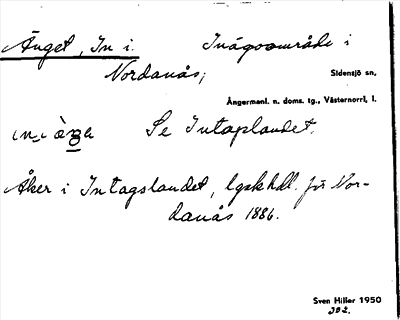 Änget, In i. Inägoområde i
Nordanås;
Sidensjö sn,
Ångermanl. n. doms. tg., Västernorrl, l.
Se Intaplandet.
Åker i Intagslandet, lgskhdl. för Nor-
danås 1886.
Sven Hiller 1950